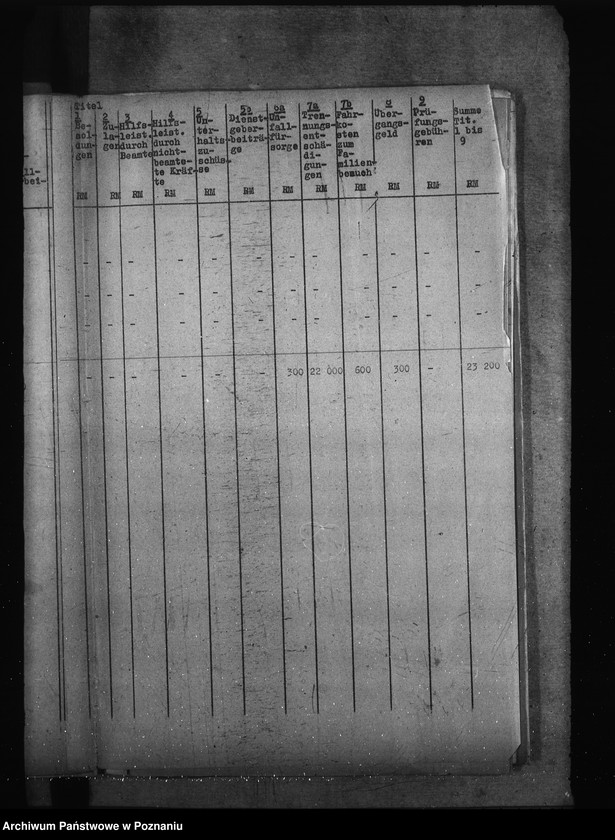 Titel
1 2 3 4 5 5a 6a 7a 7b 8 9 Summe Tit. 1 bis 9
Be-
sol-
dun-
gen
Zu-
la-
gen
Hilfs-
leist.
durch
Beamte
Hilfs-
leist.
durch
nicht-
beamte-
te Kräf-
te
Un-
ter-
halts-
zu-
schüs-
se
Dienst-
geber-
beiträ-
ge
Un-
fall-
für-
sorge
Tren-
nungs-
ent-
schä-
di-
gun-
gen
Fahr-
ko-
sten
zum
Fa-
milien-
besuch
Über-
gangs-
geld
Prü-
fungs-
gebüh-
ren
RM RM RM RM RM RM RM RM RM RM RM RM
- - - - - - - - - - - -
- - - - - - - - - - - -
- - - - - - - - - - - -
- - - - - - 300 22 000 600 300 - 23 200
Archiwum Państwowe w Poznaniu